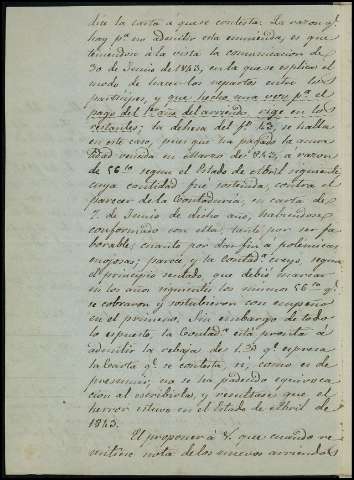 dice la carta á que se contesta: La razon qe.
hay pa. no admitir esta enmienda, es que
teniendose á la vista la comunicacion de
30 de Junio de 1843, en la que se esplica el
modo de hacer los repartos entre los
partícipes, y que hecho una vez pa. el
pago del 1er. año del arriendo, rige en los
restantes; la dehesa del fo. 43, se halla
en este caso, pues que ha pagado la anua
lidad vencida en Marzo de 1843, a razon
de 56 segun el Estado de Abril siguiente
cuya cantidad fué sostenida, contra el
parecer de la Contaduria, en carta de
7. de Junio de dicho año, habiendose
conformado con ella, tanto por ser fa
borable, cuanto por dar fin a polemicas
enojosas; pareció y la Contada. creyó segun
el principio sentado, que debió marcar
en los años siguientes los mismos 56 qe.
se cobraron y sostubieron con empeño
en el primero. Sin embargo de todo
lo espuesto, la Contada. está pronta á
admitir la rebaja de 1.30 qe. espresa
la Carta qe. se contesta, si, como es de
presumir, no se ha padecido equivoca
cion al escribirla, y resultase que el
herror estuvo en el Estado de Abril de
1843.
El proponer á V. que cuando re
mitiese nota de los nuevos arriendos